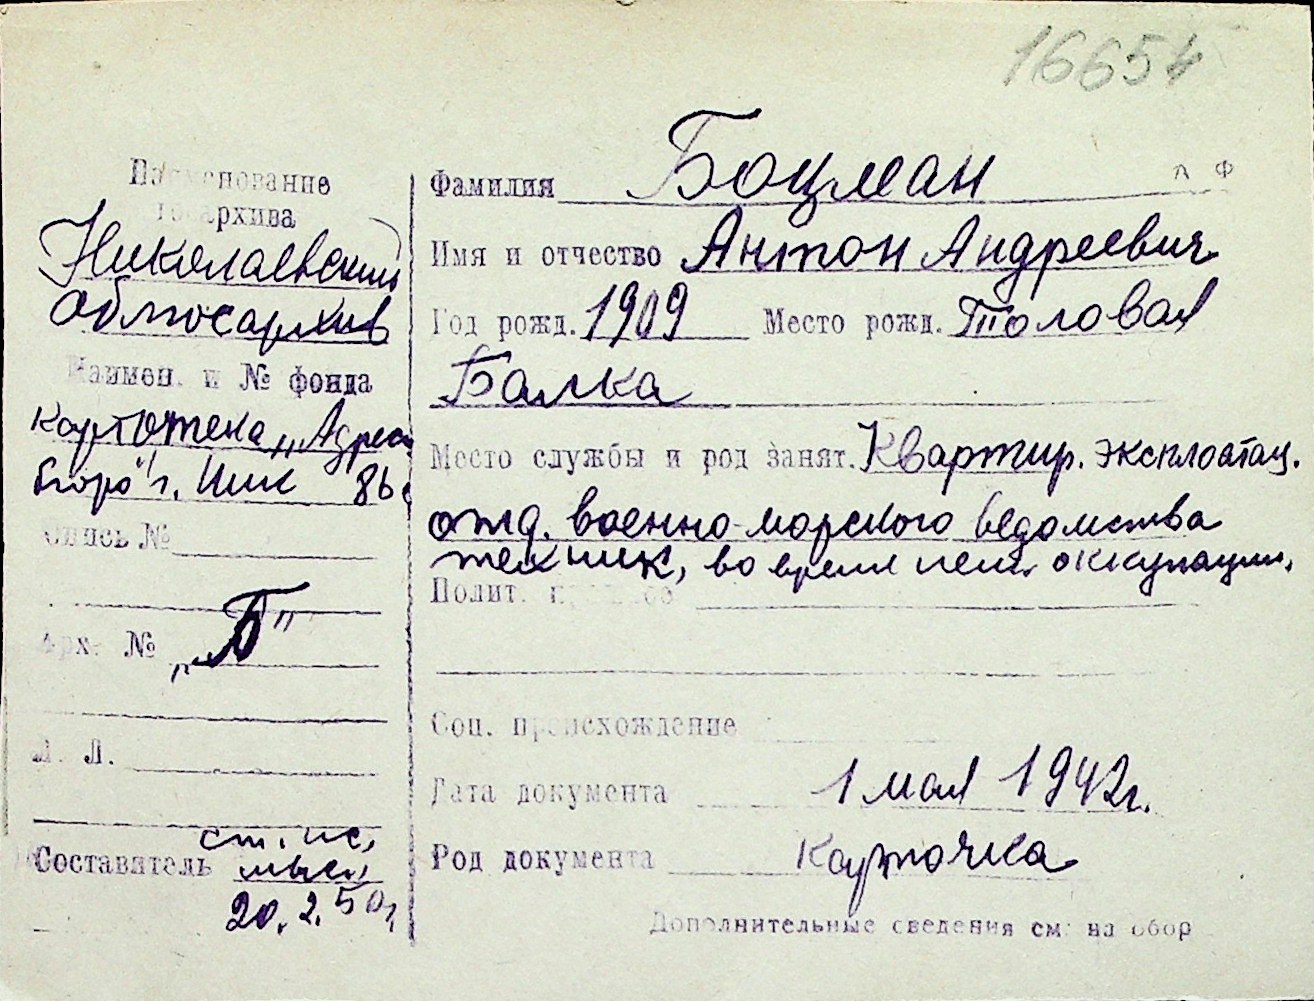 16654
Наименование
госархива
Николаевский
Облгосархив
Наимен. и № фонда
картотека „Адрес
бюро" г. Ник 86
Опись №
Арх. №
„Б"
Л. Л.
Составитель
20.2.50г.
Фамилия Боцман
Л Ф
Имя и отчество Антон Андреевич
Год рожд. 1909 Место рожд. Толовая
Балка
Место службы и род занят. Квартир. эксплоатац.
отд. военно-морского ведомства
техник, во время нем. оккупации,
Полит.
Соц. происхождение
Дата документа 1 мая 1942г.
Род документа Карточка
Дополнительные сведения см. на обор